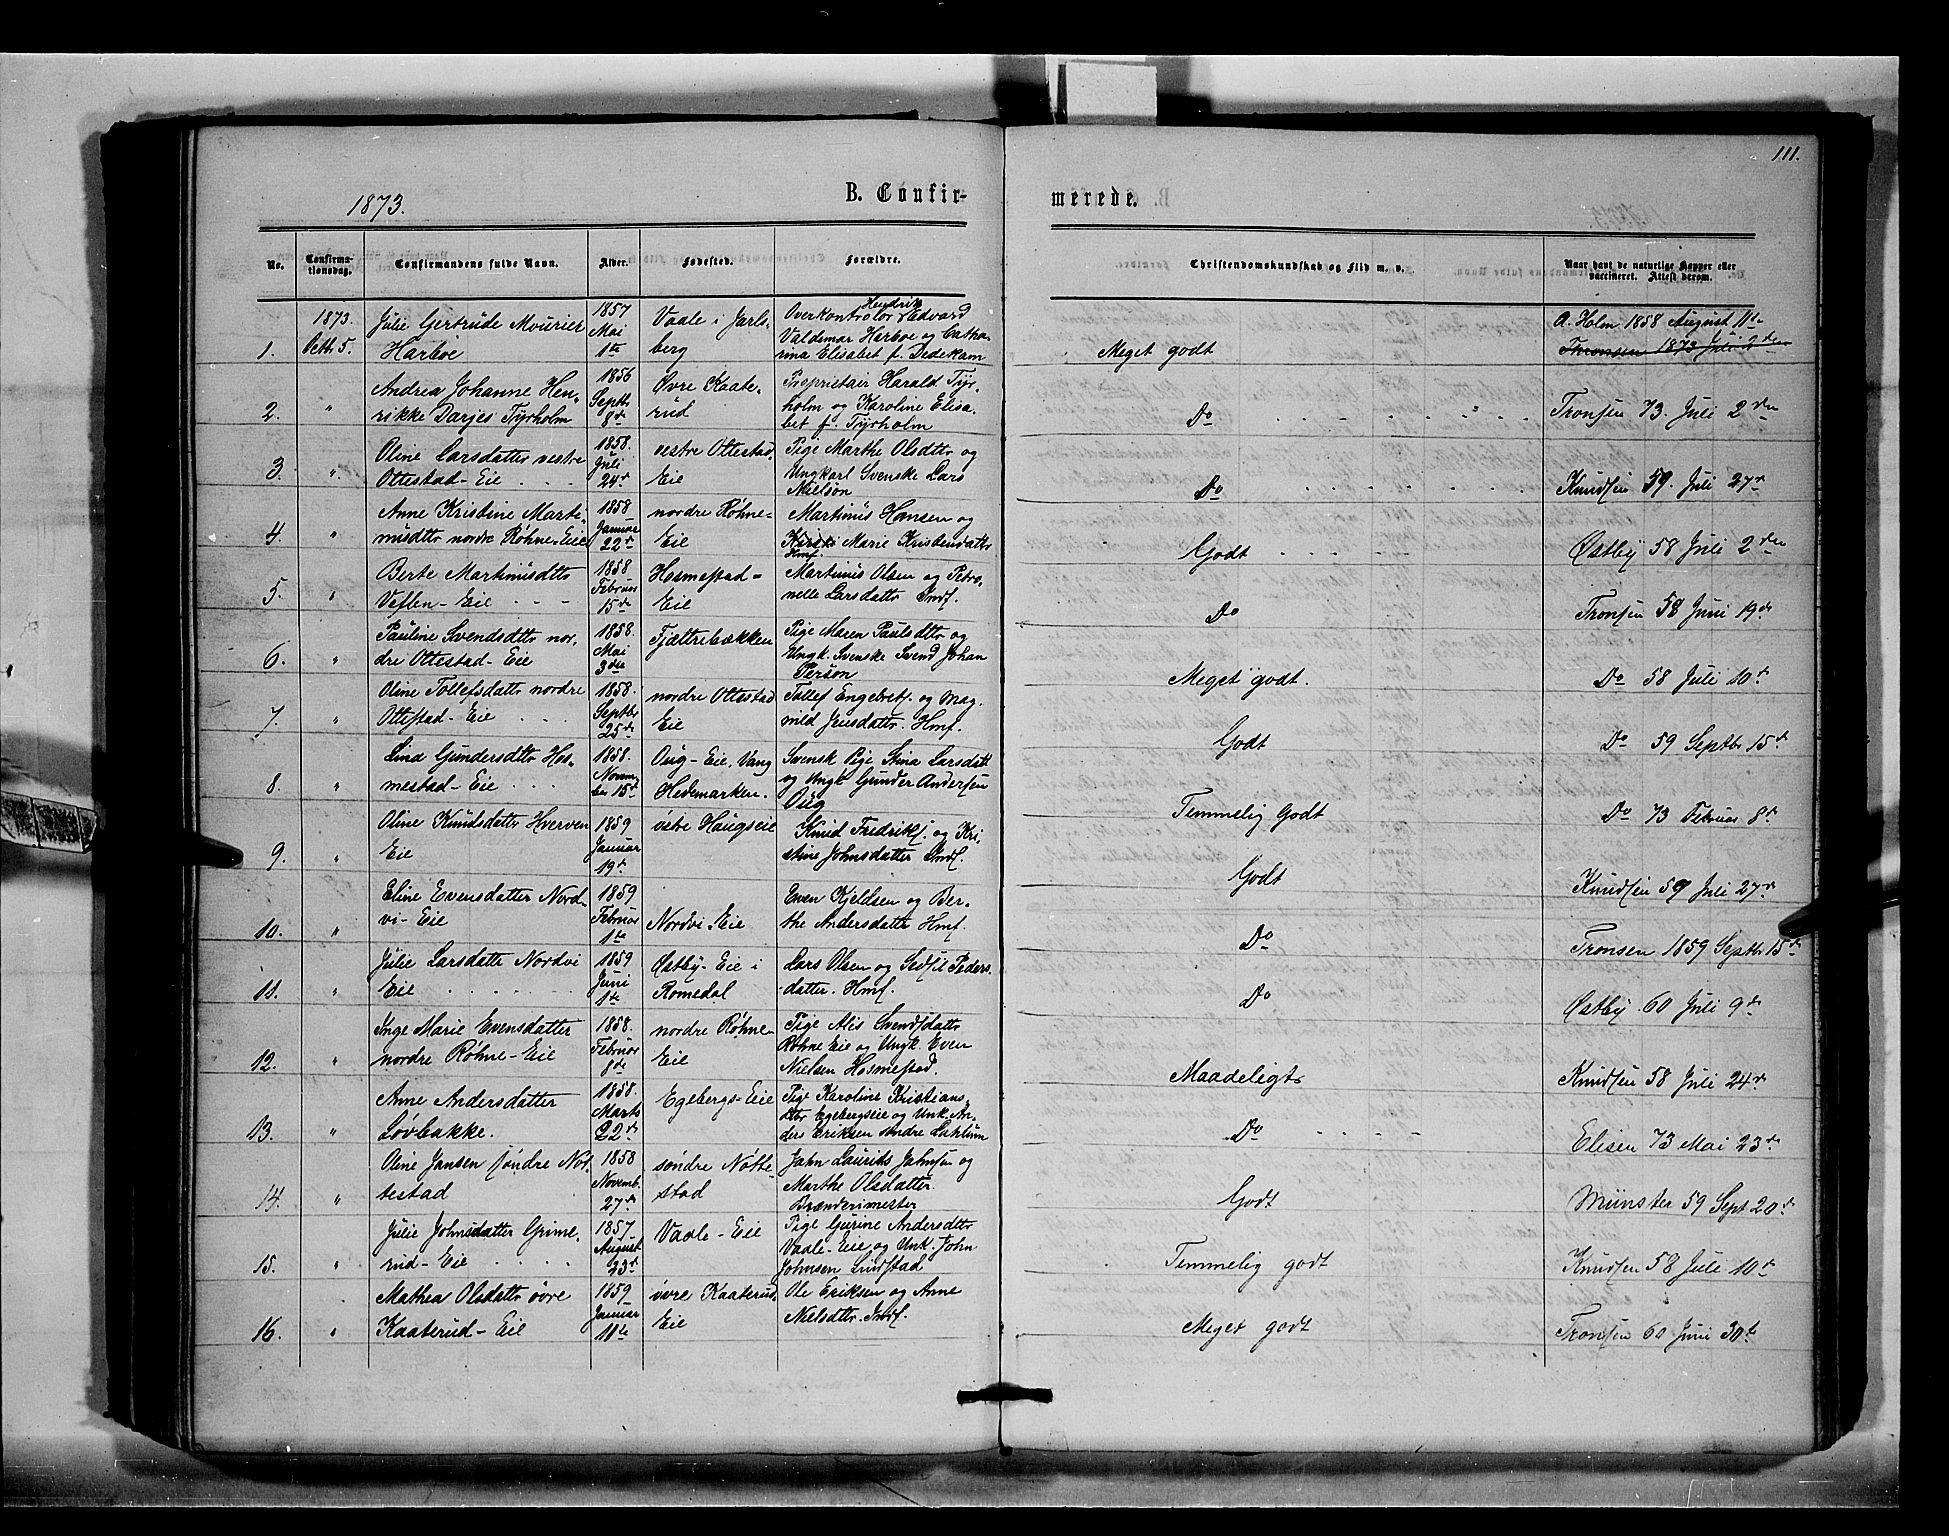 111.
1873.
B. Confir-
merede.
No.
Confirma-
tionsdag.
Confirmandens fulde Navn.
Alder.
Fødested.
Forældre.
Christendomskundskab og Flid m. v.
Naar havt de naturlige Kopper eller
vaccineret. Attest derom.
1873.
1. Octb. 5.
Julie Gertrude Mourier
Harboe
1857
Mai
1te
Vaale i Jarls-
berg
Overkontrolør Hendrik Edvard
Valdemar Harboe og Catha-
rina Elisabet f. Dedekam
Meget godt
A. Holm 1858 August 11te
Thronsen 1873 Juli 2den
2. "
Andrea Johanne Hen-
rikke Darjes Tyrholm
1856
Septb.
8de
Øvre Kaate-
rud
Proprietair Harald Tyr-
holm og Karoline Elisa-
bet f. Tyrholm
Do
Tronsen 73. Juli 2den
3. "
Oline Larsdatter vestre
Ottestad-Eie
1858.
Juli
24de
vestre Ottestad
Eie
Pige Marthe Olsdtr og
Ungkarl Svenske Lars
Nielson
Do
Knudsen 59. Juli 27de
4. "
Anne Kristine Marti-
nusdtr nordre Røhne-Eie
1858
Januar
22de
nordre Røhne-
Eie
Martinus Hansen og
Marie Kristensdatter
Hmf.
Godt
Østby 58 Juli 2den
5. "
Berte Martinusdtr
Veflen-Eie
1858
Februar
15de
Hosmestad-
Eie
Martinus Olsen og Petro-
nelle Larsdatter Indf.
Do
Tronsen 58 Juni 19de
6. "
Pauline Svendsdtr nor-
dre Ottestad-Eie
1858.
Mai
3die
Fjættrebækken
Pige Maren Paulsdtr og
Ungk. Svenske Svend Johan
Person
Meget godt.
Do 58 Juli 10de
7. "
Oline Tollefsdatter nordre
Ottestad-Eie
1858.
Septbr
25de
nordre Ottestad
Eie
Tollef Engebretf. og Mag-
nild Jensdatter. Hmf.
Godt
Do 59 Septbr 15de
8. "
Lina Gundersdtr Hos-
mestad-Eie
1858.
Novem-
ber 15de
Oug-Eie, Vang
Hedemarken.
Svensk Pige Stina Larsdatt
og Ungk Gunder Andersen
Oug
Temmelig Godt
Do 73 Februar 8de
9. "
Oline Knudsdatter Hverven
Eie
1859
Januar
19de
østre Haugseie
Knud Fredriks. og Kri-
stine Johnsdatter Indf.
Godt
Knudsen 59 Juli 27de
10. "
Eline Evensdatter Nord-
vi-Eie
1859
Februar
1te
Nordvi-Eie
Even Kjeldsen og Ber-
the Andersdatter Hmf.
Do
Tronsen 1859 Septbr 15de
11. "
Julie Larsdatter Nordvi
Eie
1859
Juni
1te
Østby-Eie i
Romedal
Lars Olsen og Sedsil Peders-
datter. Hmf.
Do
Østby 60 Juli 9de
12. "
Inge Marie Evensdatter
nordre Røhne-Eie
1858.
Februar
8de
nordre Røhne-
Eie
Pige Alis Svendsdatter
Røhne Eie og Ungk. Even
Nielsen Hosmestad.
Maadeligt
Knudsen 58 Juli 24de
13. "
Anne Andersdatter
Løvbakke.
1858.
Marts
22de
Egebergs-Eie
Pige Karoline Kristians-
dtr Egebergseie og Unk. An-
ders Eriksen Dahlum
Do
Elisen 73 Mai 23de
14. "
Oline Jansen søndre Not-
testad
1858
Novemb.
27de
søndre Notte-
stad
Jahn Laurits Jahnsen og
Marthe Olsdatter.
Brænderimester
Godt
Münster 59 Sept 20de
15. "
Julie Johnsdatter Grime-
rud-Eie
1857
August
23de
Vaale-Eie
Pige Gurine Andersdtr
Vaale-Eie og Unk. John
Johnsen Lindstad
Temmelig godt
Knudsen 58 Juli 10de
16. "
Mathea Olsdattr øvre
Kaaterud-Eie
1859
Januar
11te
øvre Kaaterud
Eie
Ole Eriksen og Anne
Nielsdtr. Indf.
Meget godt
Tronsen 60 Juni 30te